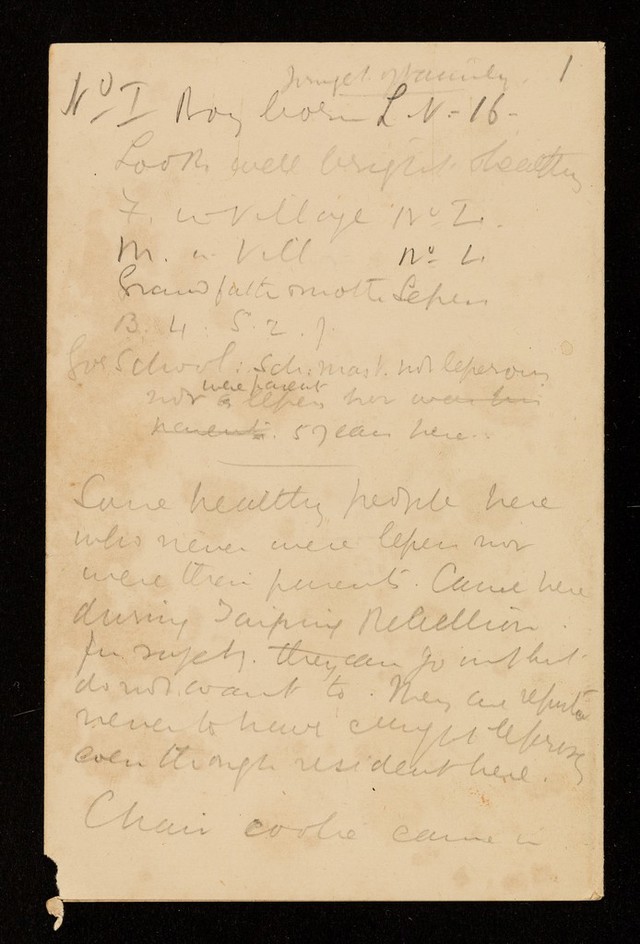 1
No I Boy born L.V.- 16 -
Looks well bright & healthy
F. in Village No L.
M. in Vill No L.
Grandfath & moth Lepers
B. 4. S. 2. J.
School: Sch: mast. not leperous
were parent
nor a leper nor was his
parents. 5 years here.
Some healthy people here
who never were lepers nor
were their parents. Came here
during Taiping Rebellion.
for safety. they can go out but
do not want to. They are reputed
never to have caught leprosy
even though resident here.
Chair coolie came in